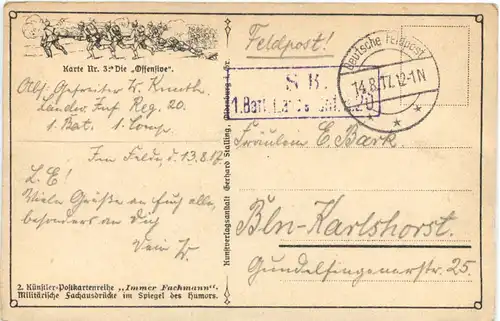 Karte Nr. 3: Die „Offensive".
Abs: Gefreiter Fr. Knuth
Landw. Inf. Reg. 20
1. Bat. 1. Comp.
Im Felde, d. 13.8.17
L. E!
Viele Grüße an Euch alle,
besonders an Dich
Dein Fr.
2. Künstler-Postkartenreihe „Immer Fachmann".
Militärische Fachausdrücke im Spiegel des Humors.
Kunstverlagsanstalt Gerhard Stalling, Oldenburg i. Gr.
Feldpost!
S. B.
1. Batl. 20
Deutsche Feldpost
14.8.17. 12-1 N
Fräulein E. Bark
Bln-Karlshorst.
Gundelfingerstr. 25.